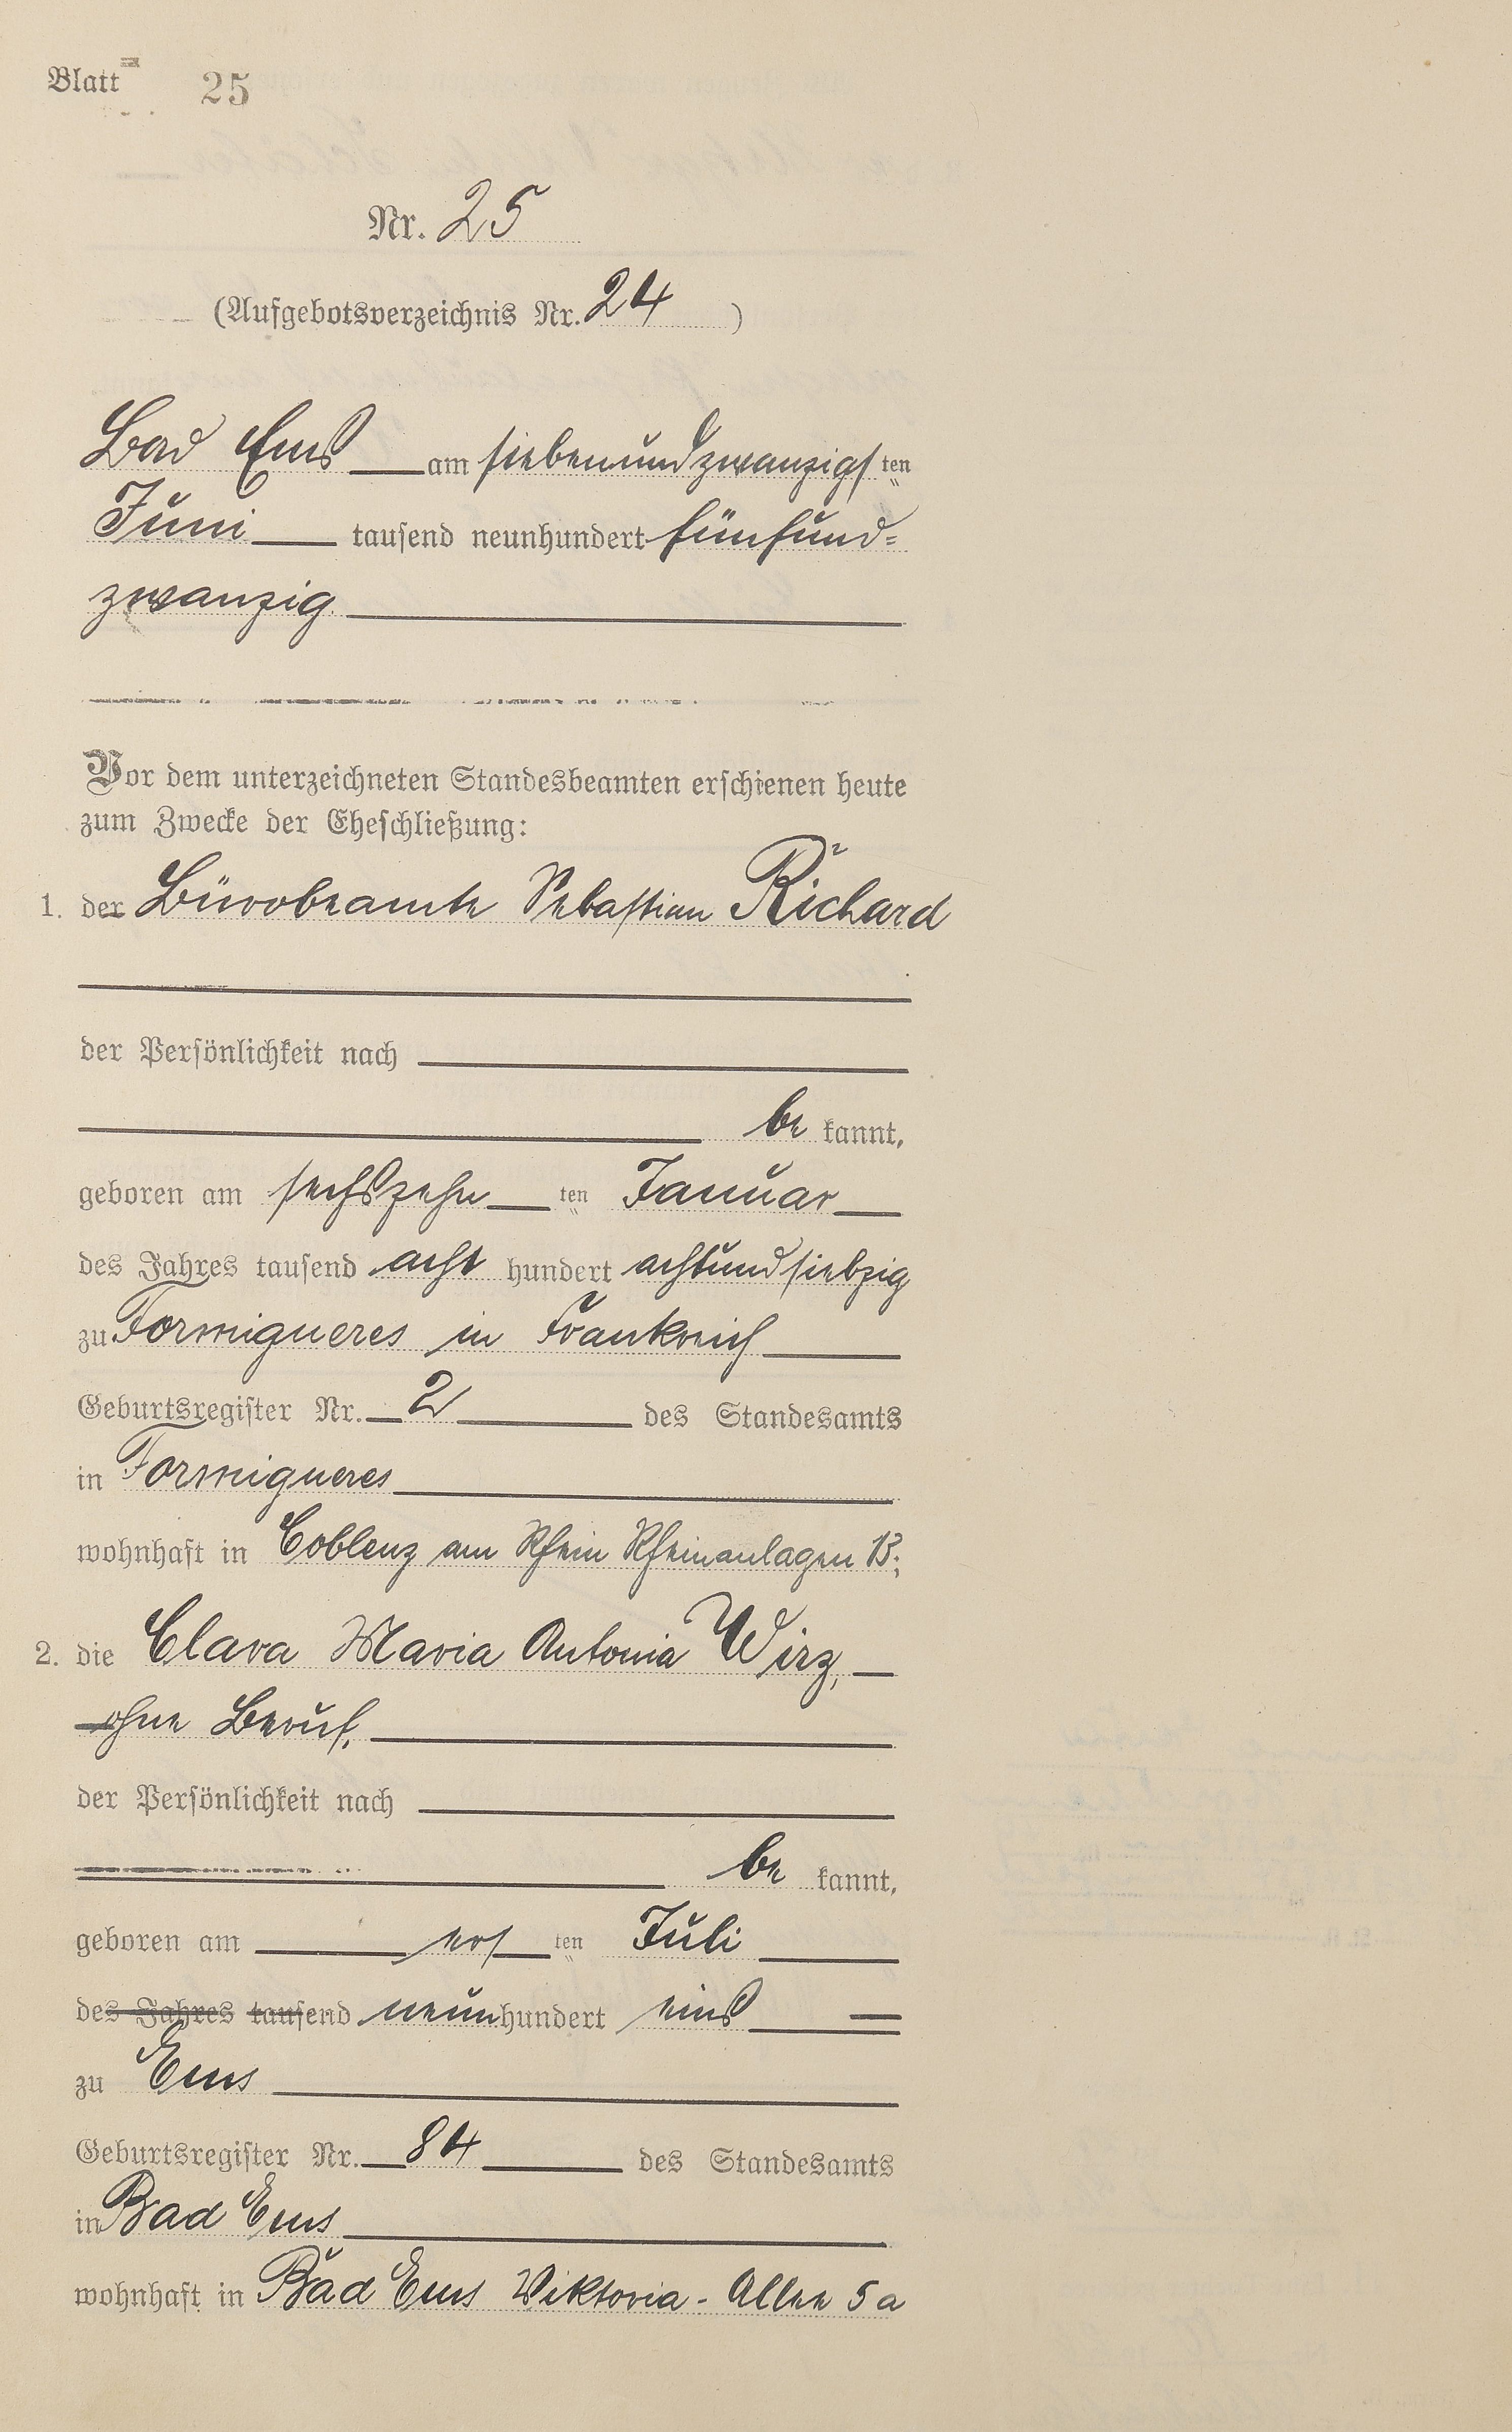 Blatt 25
Nr. 25
(Aufgebotsverzeichnis Nr. 24 )
Bad Ems am siebenundzwanzigsten
Juni tausend neunhundert fünfund-
zwanzig.
Vor dem unterzeichneten Standesbeamten erschienen heute
zum Zwecke der Eheschließung:
1. der Bürobeamte Sebastian Richard
der Persönlichkeit nach
be kannt,
geboren am sechszehn ten Januar
des Jahres tausend acht hundert achtundsiebzig
zu Formigueres in Frankreich
Geburtsregister Nr. 2 des Standesamts
in Formigueres
wohnhaft in Coblenz am Rhein Rheinanlagen 13;
2. die Clara Maria Antonia Wirz,
ohne Beruf,
der Persönlichkeit nach
be kannt,
geboren am ers ten Juli
des Jahres tausend neunhundert eins
zu Ems
Geburtsregister Nr. 84 des Standesamts
in Bad Ems
wohnhaft in Bad Ems Viktoria-Allee 5a